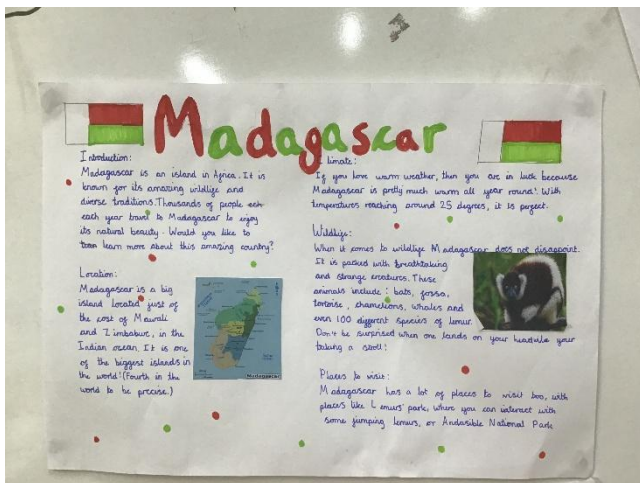 Madagascar
Introduction:
Madagascar is an island in Africa. It is
known for its amazing wildlife and
diverse traditions. Thousands of people
each year travel to Madagascar to enjoy
its natural beauty. Would you like to
learn more about this amazing country?
Location:
Madagascar is a big
island located just of
the cost of
and Zimbabwe, in the
Indian ocean. It is one
of the biggest islands in
the world! (Fourth in the
world to be precise.)
Madagascar
limate:
If you love warm weather, then you are in luck because
Madagascar is pretty much warm all year round! With
temperatures reaching around 25 degrees, it is perfect.
Wildlife:
When it comes to wildlife Madagascar does not disappoint.
It is packed with breathtaking
and strange creatures. These
animals include: bats, fossa,
tortoise, chameleons, whales and
even 100 different species of lemur.
Don't be surprised when one lands on your head while your
taking a stroll!
Places to visit:
Madagascar has a lot of places to visit too, with
places like Lemurs' park, where you can interact with
some jumping lemurs, or Andasible National Park